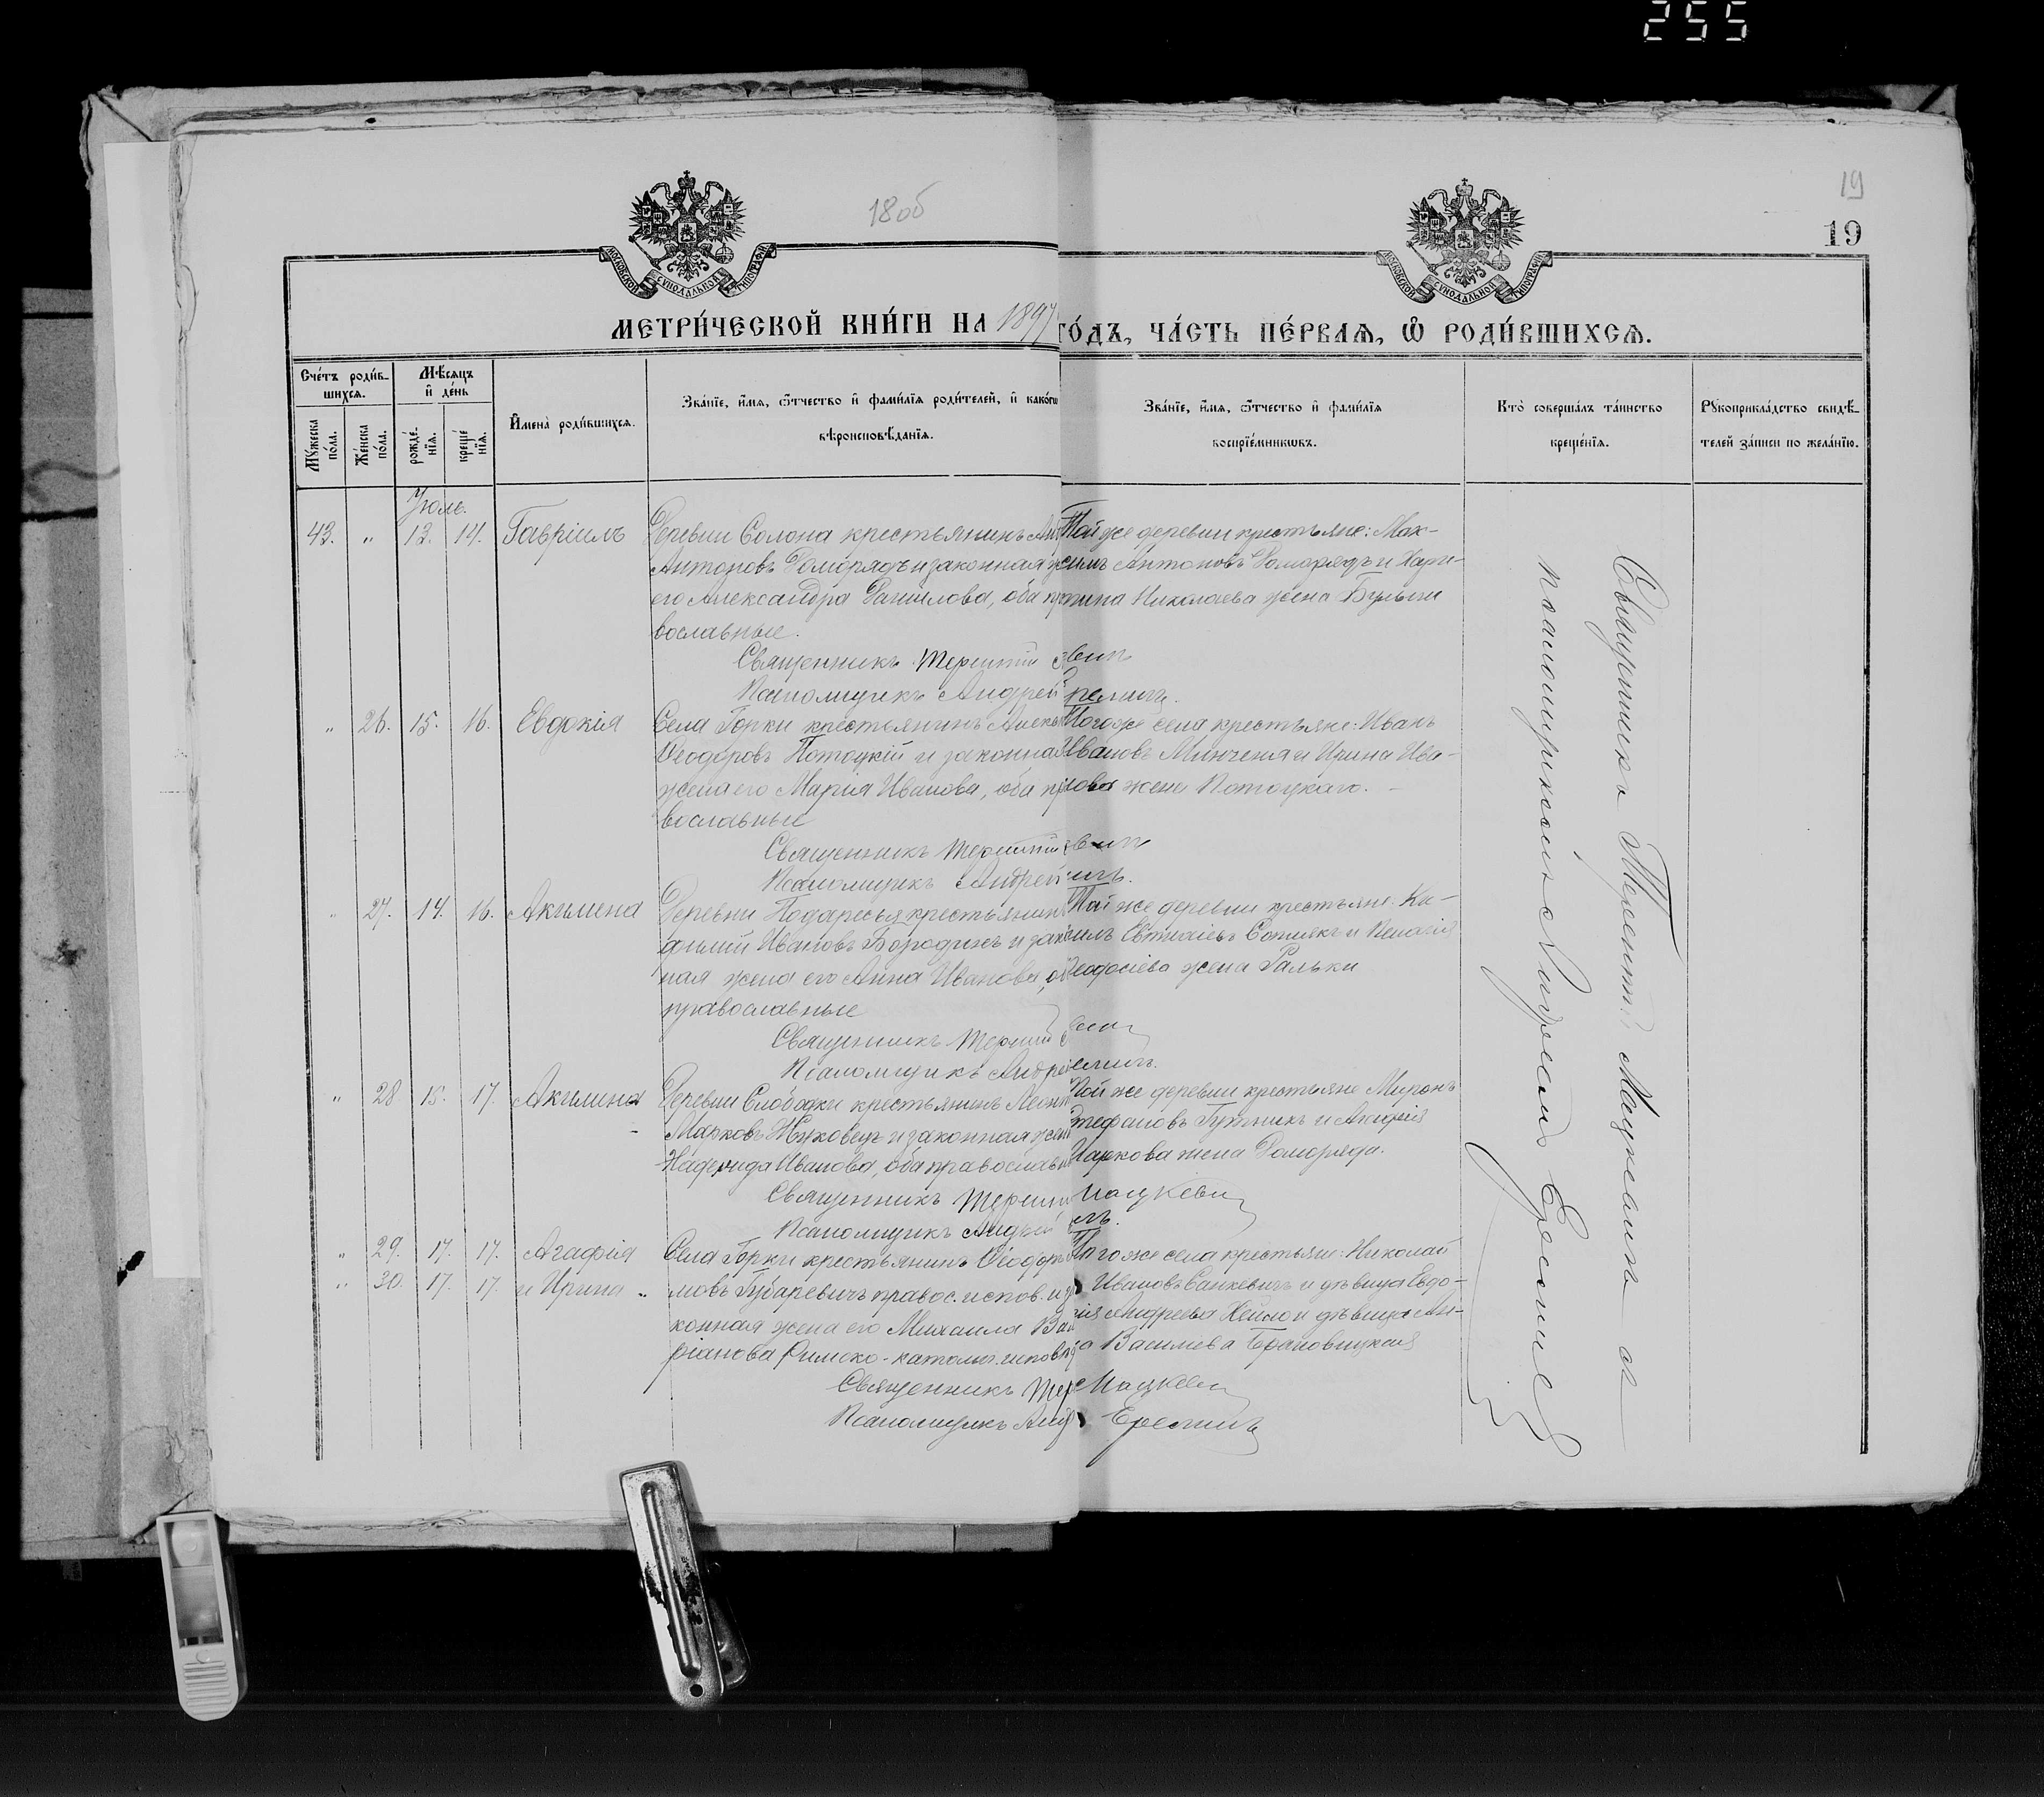 255
19
18об
19
МОСКОВСКОЙ СУНОДАЛЬНОЙ ТИПОГРАФИИ
МОСКОВСКОЙ СУНОДАЛЬНОЙ ТИПОГРАФИИ
МЕТРИ́ЧЕСКОЙ КНИ́ГИ НА 1897 ГО́ДЪ, ЧА́СТЬ ПЕ́РВАѦ, Ѽ РОДИ́ВШИХСѦ.
Сче́тъ роди́в-
шихсѧ.
Мꙋ́жеска по́ла.
Же́нска по́ла.
Мѣ́сѧцъ
и҆ де́нь
рожде́-
нїѧ.
креще́
нїѧ.
И҆мена̀ роди́вшихсѧ.
Зва́нїе, и҆́мѧ, ѻ҆́тчество и҆ фами́лїѧ роди́телей, и҆ како́гѡ
вѣроисповѣ́данїѧ.
Зва́нїе, и҆́мѧ, ѻ҆́тчество и҆ фами́лїѧ
воспрїе́мникѡвъ.
Кто̀ соверша́лъ та́инство
креще́нїѧ.
Рꙋкоприкла́дство свидѣ́-
телей за́писи по жела́нїю.
Іюль.
43. " 13. 14. Гавріилъ
Деревни Солона крестьянинъ
Антоновъ Доморядъ и законная
его Александра Данилова, оба пра
вославные.
Священникъ Терентій
Псаломщикъ Андрей
Той же деревни крестьяне: Мак-
симъ Антоновъ Доморядъ и Хари-
тина Николаева жена
" 26. 15. 16. Евдокія
Села Горки крестьянинъ Алекс
Ѳеодоровъ Потоцкій и законная
жена его Марія Иванова, оба пра
вославные
Священникъ Терентій
Псаломщикъ Андрей
Того же села крестьяне: Иванъ
Ивановъ Минченя и Ирина Ива-
нова жена Потоцкаго. –
" 27. 14. 16. Акилина
Деревни Подаресья крестьянинъ
Ивановъ Бородичъ и закон
ная жена его Анна Иванова, оба
православные
Священникъ Терентій
Псаломщикъ Андрей
Той же деревни крестьяне:
и Пелагія
Ѳеодосіева жена
" 28 15. 17. Акилина
Деревни Слободки крестьянинъ Леонт
Марковъ Жуковецъ и законная жена
Надежда Иванова, оба православн
Священникъ Терентій Мацкевичъ
Псаломщикъ Андрей
Той же деревни крестьяне Миронъ
Стефановъ и Агафія
Маркова жена Доморяда.
" 29. 17. 17. Агафія
" 30. 17. 17. и Ирина "
Села Горки крестьянинъ Ѳеодоръ
мовъ Губаревичъ правос. испов. и за
конная жена его Михалина Вал
ріанова Римско-католич. исповѣд
Священникъ Тер Мацкевичъ
Псаломщикъ Анд Еремичъ
Того же села крестьяне: Николай
Ивановъ Санкевичъ и дѣвица Евдо-
кія Андреева и дѣвица Ан-
на Васильева Брановицкая
Священникъ Терентій Мацкевичъ
псаломщикомъ Андреемъ